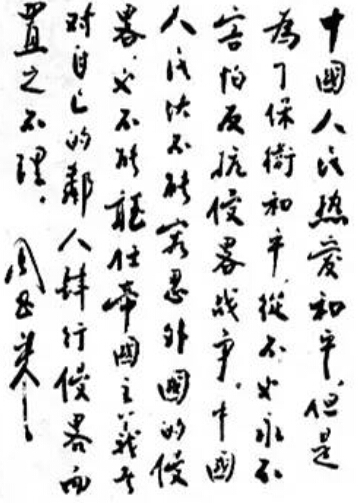 中國人民热爱和平,但是
為了保衛和平,從不也永不
害怕反抗侵畧战争。中國
人民决不能容忍外國的侵
畧,也不能聽任帝國主義者
对自己的鄰人肆行侵畧而
置之不理。周恩来